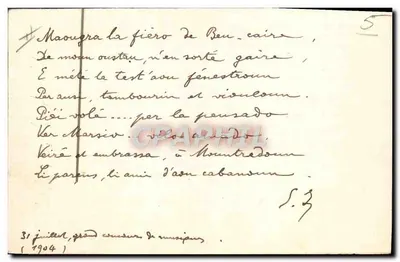 5
Maougra la fiero de Beu-caire,
De moun oustau, n'en sorte gaire,
E mete la test'aou fenestroun
Per ausi, tambourin et viouloun.
Pièi volé.... per la pensado
Ver Marsio
Veire et embrassa, à Mountredoun
Li parens, li amis d'aou cabanoun.
31 juillet, grand concours de musiques
(1904)